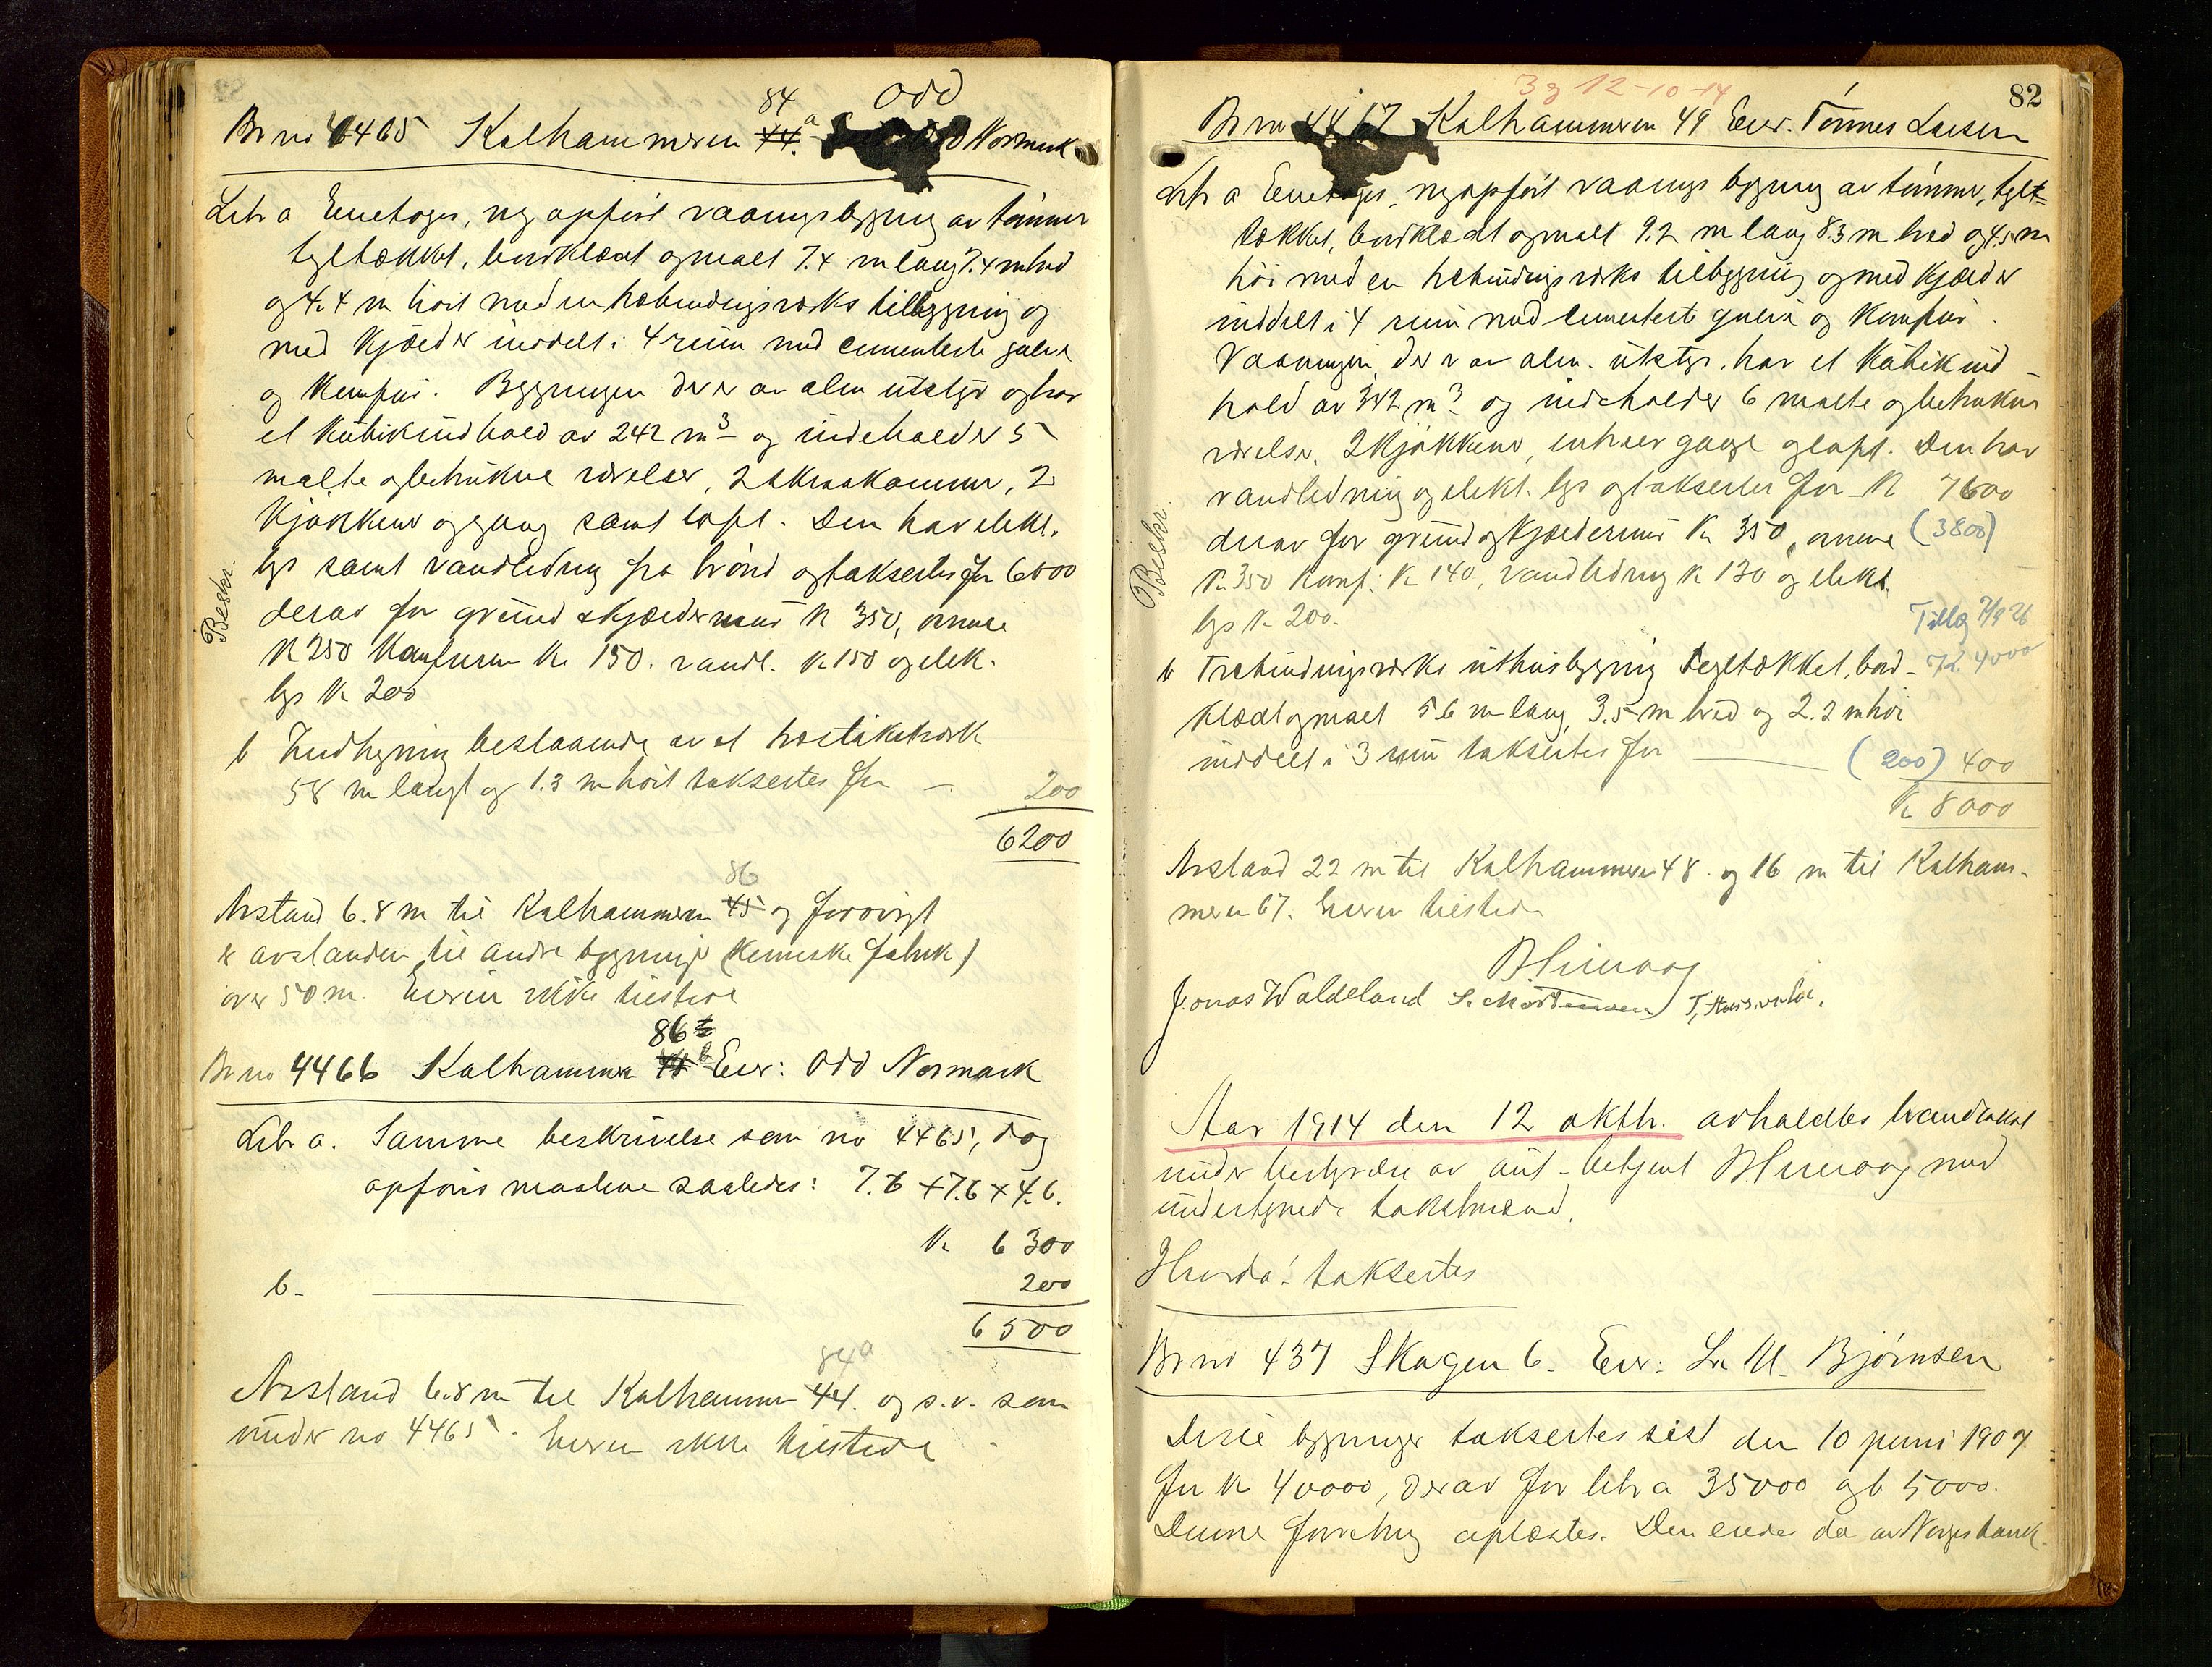 84 Odd
Br no 4465 Kalhammeren 44.a Odd Normark
Litr a Enetages, ny opført vaaningsbygning av tømmer
tegltækket, bordklædt og malt 7.4 m lang 7.4 m bred
og 4.4 m høit med en trebindingsverks tilbygning og
med kjælder inddelt i 4 rum med cementerte gulve
og komfur. Bygningen der er av alm utstyr og har
et kubikindhold av 242 m³ og indeholder 5
malte og betrukne værelser, 2 skraakammer, 2
kjøkkener og gang samt loft. Den har elekt.
lys samt vandledning fra brønd og taksertes for 6000
derav for grund & kjældermur K 350, ovnene
K 250 Komfuren K. 150. vandl. K 150 og elek.
lys K 200
Beskr.
b Indhegning bestaaende av et hvitt stakitverk
58 m langt og 1.3 m høit taksertes for – 200
6200
86
Avstand 6.8 m til Kalhammeren 45 og forøvrigt
er avstanden til andre bygninger (kemiske fabrik)
over 50 m. Eieren ikke tilstede
86
Br no 4466 Kalhammeren b Eier: Odd Normark
Litr a. Samme beskrivelse som no 4465, dog
opføres maalene saaledes: 7.6 + 7.6 × 4.6.
K 6300
b. 200
6500
84a
Avstand 6.8 m til Kalhammeren 44. og s.v. som
under no 4465. Eieren ikke tilstede
3g 12-10-14
82
Br no 4467 Kalhammeren 49 Eier. Tønnes Larsen
Litr a Enetages, nyopført vaanings bygning av tømmer, tegl-
tækket, bordklædt og malt 9.2 m lang 8.3 m bred og 4.5 m
høi med en trebindingsverks tilbygning og med kjælder
inddelt i 4 rum med cementerte gulve og komfur.
Vaaningen, der er av alm. utstyr. har et kubikind
hold av 342 m³ og indeholder 6 malte og betrukne
værelser, 2 kjøkkener, entreer gange og loft. Den har
vandledning og elekt. lys og taksertes for K 7600
derav for grund og kjældermur K 350, ovnene (3800)
K. 350 Komf: K 140, vandledning K 130 og elekt.
lys K 200.
Beskr.
Tillæg 7/9 26
b Trebindingsverks uthusbygning tegltækket, bord- K. 4000
klædt og malt 5.6 m lang, 3.5 m bred og 2.2 m høi
inddelt i 3 rum taksertes for (200) 400
K 8000
Avstand 22 m til Kalhammeren 48. og 16 m til Kalham-
meren 67. Eieren tilstede
Jonas Waldeland S. Mortensen
Aar 1914 den 12 oktbr. avholdtes brandtakst
under bestyrelse av aut-betjent med
undertegnede takstmænd.
Hvorda! taksertes
Br no 437 Skagen 6. Eier: L. M. Bjørnsen
Disse bygninger taksertes sist den 10 juni 1907
for K 40000, derav for litr a 35000 og b 5000.
Denne forretning oplæstes. Den eiedes da av Norges bank.